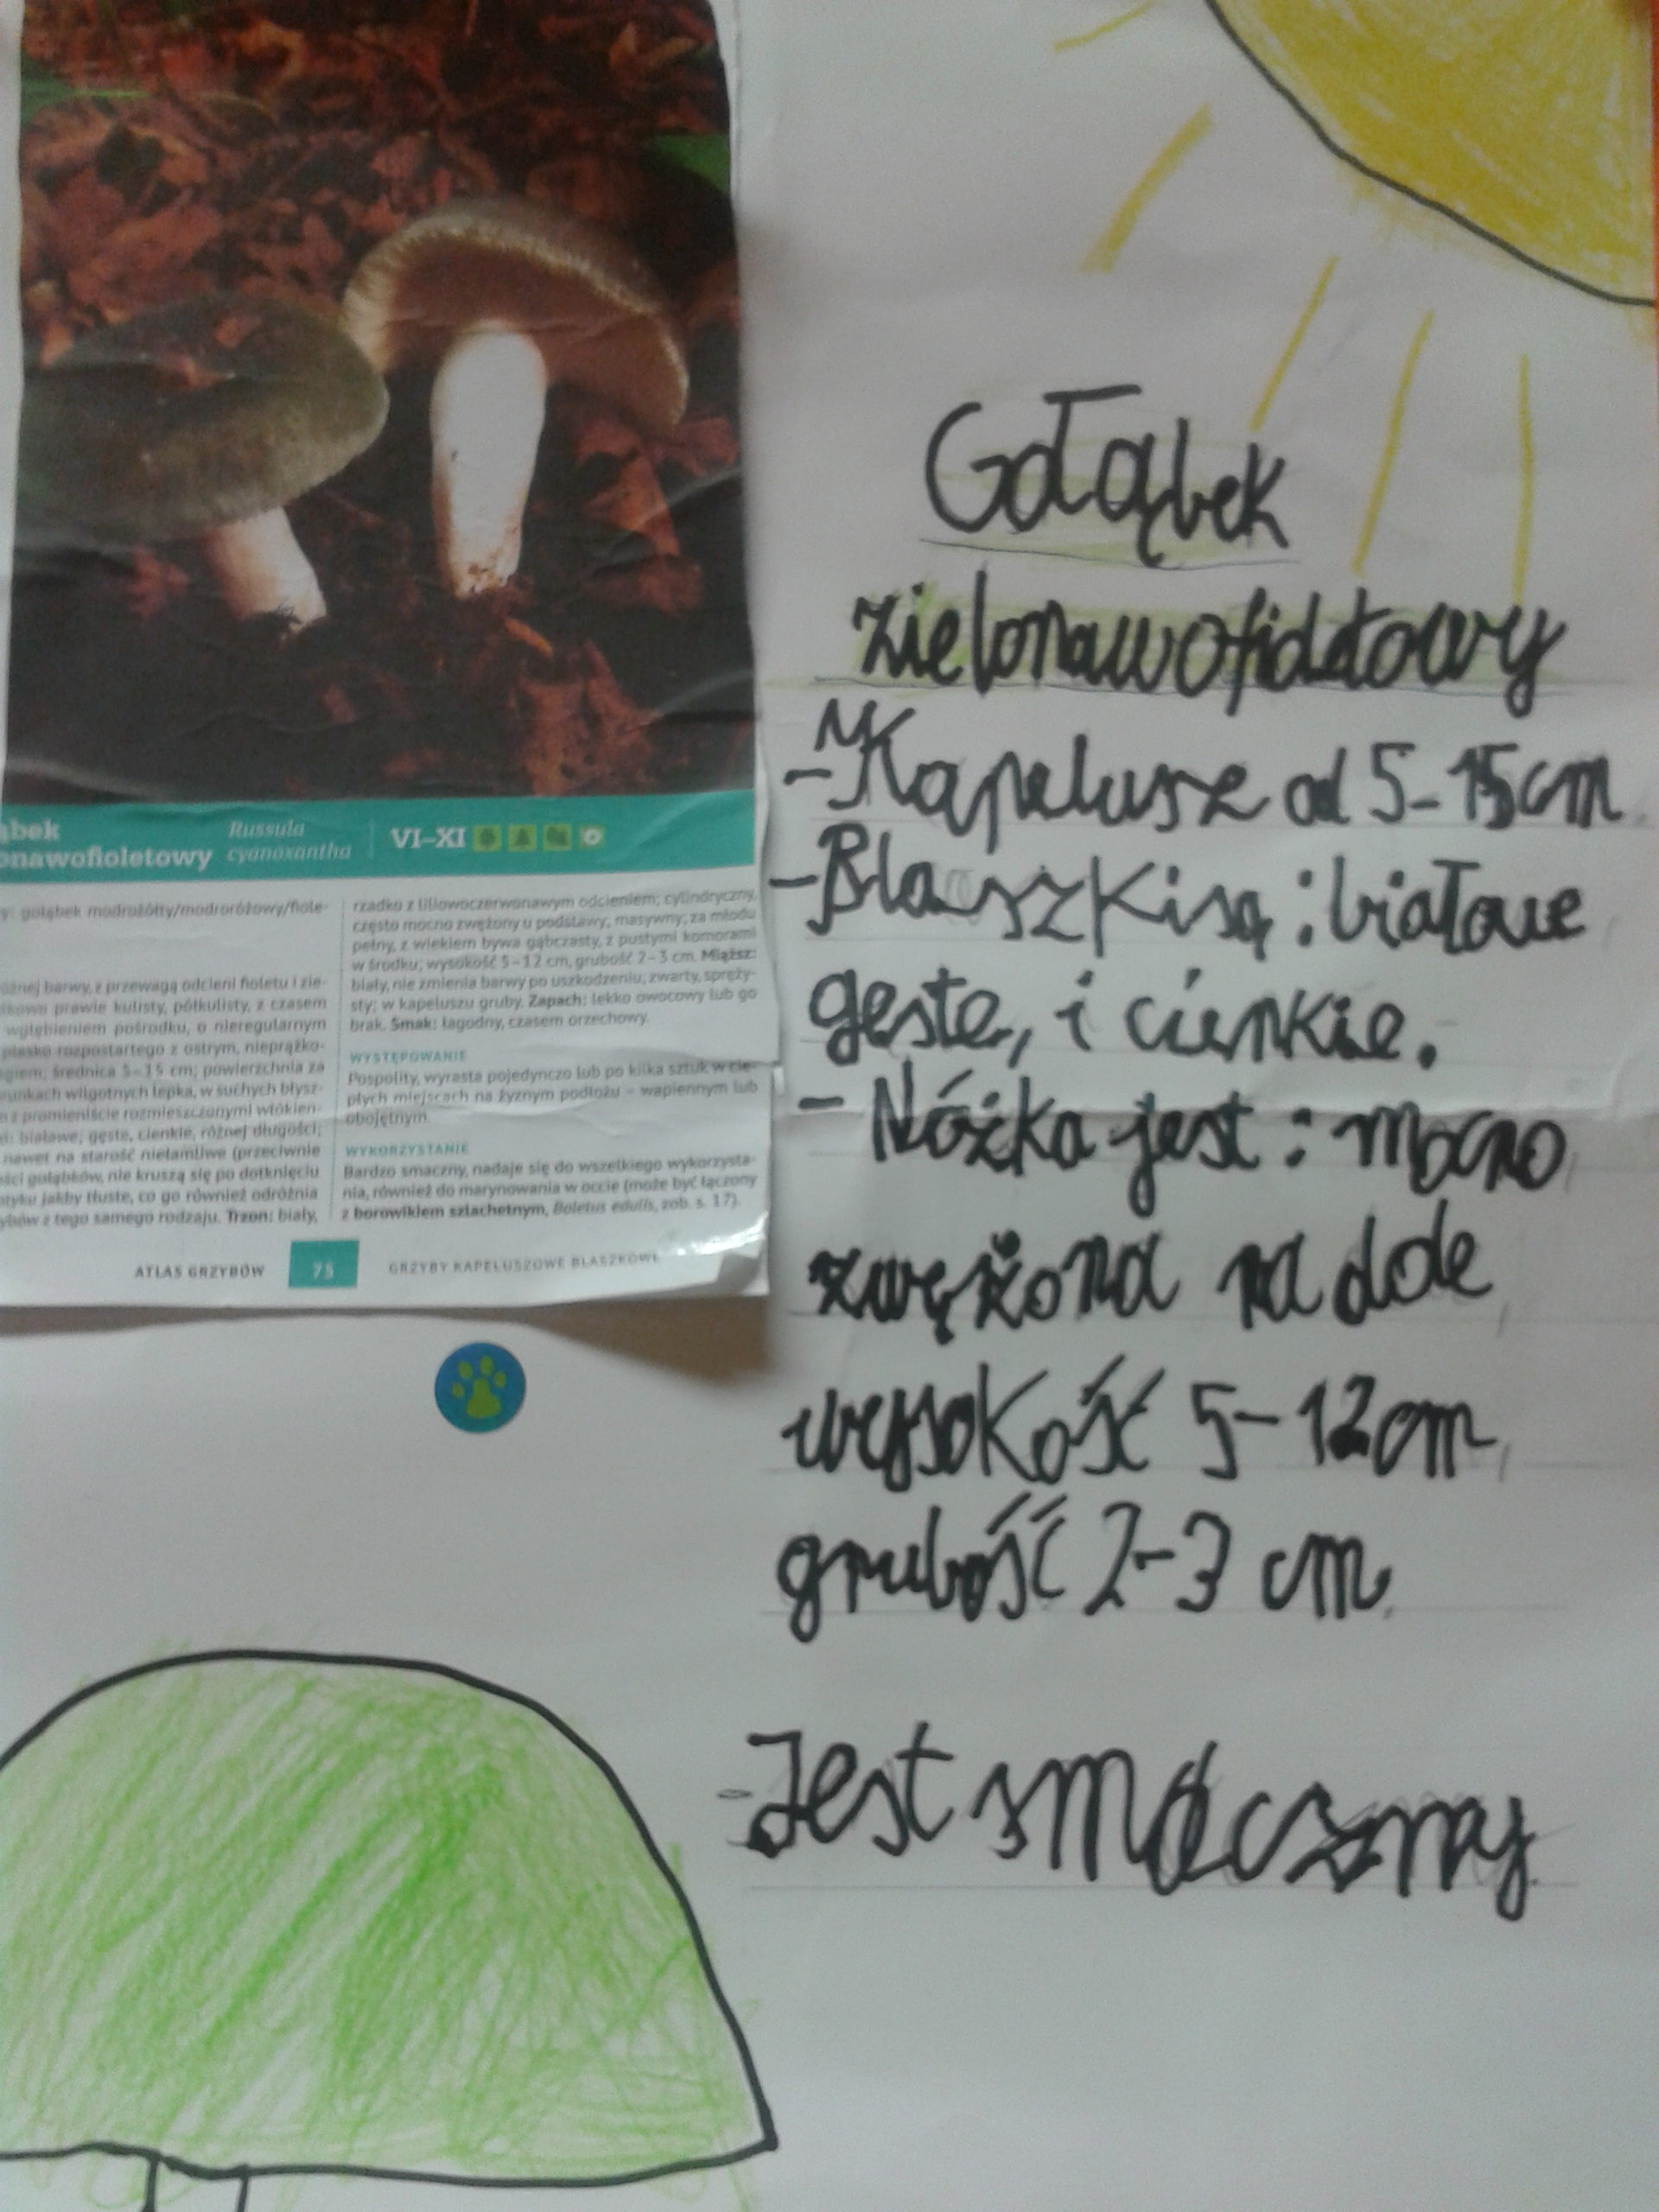 ąbek
onawofioletowy
Russula
cyanoxantha
VI–XI
y: gołąbek modrożółty/modroróżowy/fiole-
óżnej barwy, z przewagą odcieni fioletu i zie-
tkowo prawie kulisty, półkulisty, z czasem
wgłębieniem pośrodku, o nieregularnym
płasko rozpostartego z ostrym, nieprążko-
giem; średnica 5–15 cm; powierzchnia za
unkach wilgotnych lepka, w suchych błysz-
z promieniście rozmieszczonymi włókien-
i: białawe; gęste, cienkie, różnej długości;
nawet na starość niełamliwe (przeciwnie
ści gołąbków, nie kruszą się po dotknięciu
otyku jakby tłuste, co go również odróżnia
ybów z tego samego rodzaju. Trzon: biały,
rzadko z liliowoczerwonawym odcieniem; cylindryczny,
często mocno zwężony u podstawy; masywny; za młodu
pełny, z wiekiem bywa gąbczasty, z pustymi komorami
w środku; wysokość 5–12 cm, grubość 2–3 cm. Miąższ:
biały, nie zmienia barwy po uszkodzeniu; zwarty, spręży-
sty; w kapeluszu gruby. Zapach: lekko owocowy lub go
brak. Smak: łagodny, czasem orzechowy.
WYSTĘPOWANIE
Pospolity, wyrasta pojedynczo lub po kilka sztuk w cie-
płych miejscach na żyznym podłożu – wapiennym lub
obojętnym.
WYKORZYSTANIE
Bardzo smaczny, nadaje się do wszelkiego wykorzysta-
nia, również do marynowania w occie (może być łączony
z borowikiem szlachetnym, Boletus edulis, zob. s. 17).
ATLAS GRZYBÓW 75 GRZYBY KAPELUSZOWE BLASZKOWE
Gołąbek
zielonawofioletowy
-Kapelusze od 5-15cm
-Blaszki są: białawe
gęste, i cienkie.
- Nóżka jest: mocno
zwężona na dole
wysokość 5-12cm
grubość 2-3 cm
-Jest smaczny.